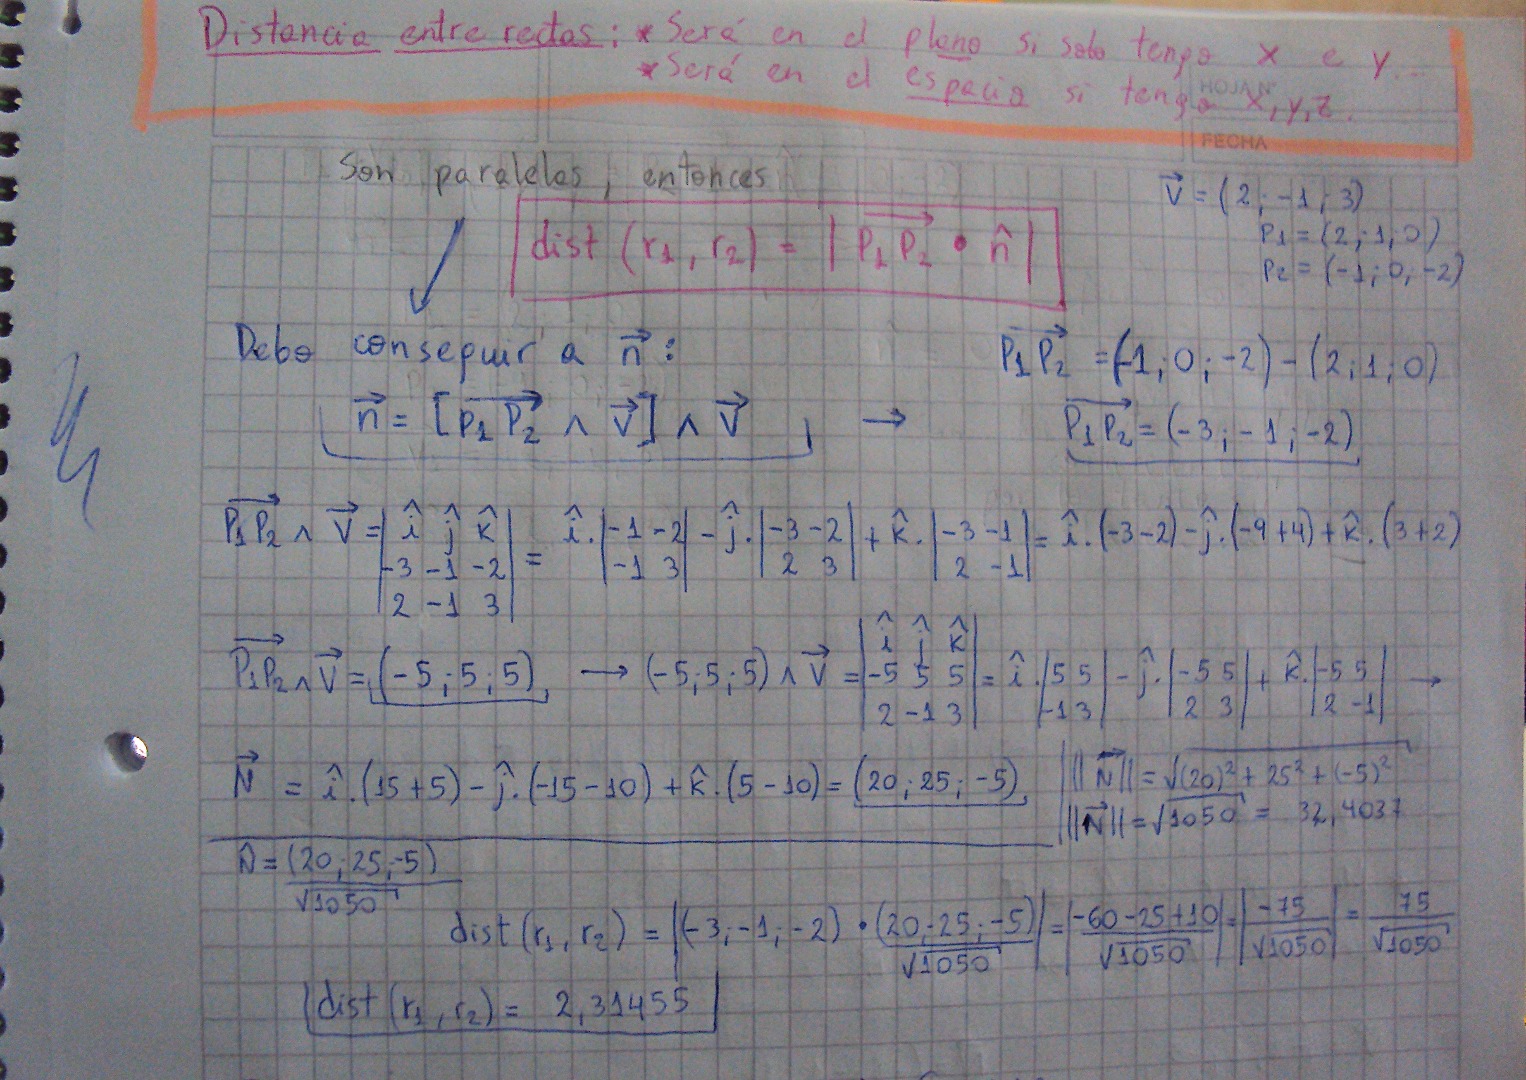 Distancia entre rectas: * Será en el plano si solo tengo x e y...
* Será en el espacio si tengo x, y, z.
HOJA Nº
FECHA
Son paralelas, entonces
dist (r₁, r₂) = | P₁P₂ • n̂ |
V⃗ = (2; -1; 3)
P₁ = (2; 1; 0)
P₂ = (-1; 0; -2)
Debo conseguir a n⃗ :
P₁P₂ = (-1; 0; -2) - (2; 1; 0)
n⃗ = [P₁P₂ ∧ V⃗] ∧ V⃗ →
P₁P₂ = (-3; -1; -2)
P₁P₂ ∧ V⃗ = | î ĵ k̂ | = î . | -1 -2 | - ĵ . | -3 -2 | + k̂ . | -3 -1 | = î . (-3-2) - ĵ . (-9+4) + k̂ . (3+2)
-3 -1 -2 -1 3 2 3 2 -1
2 -1 3
P₁P₂ ∧ V⃗ = (-5; 5; 5) → (-5; 5; 5) ∧ V⃗ = | î ĵ k̂ |
-5 5 5 | = î . | 5 5 | - ĵ . | -5 5 | + k̂ . | -5 5 | →
2 -1 3 -1 3 2 3 2 -1
N⃗ = î . (15+5) - ĵ . (-15-10) + k̂ . (5-10) = (20; 25; -5)
||N⃗|| = √(20)² + 25² + (-5)²
||N⃗|| = √1050 = 32,4037
n̂ = (20; 25; -5) / √1050
dist (r₁, r₂) = |(-3; -1; -2) • (20; 25; -5) / √1050| = |-60-25+10 / √1050| = |-75 / √1050| = 75 / √1050
dist (r₁, r₂) = 2,31455